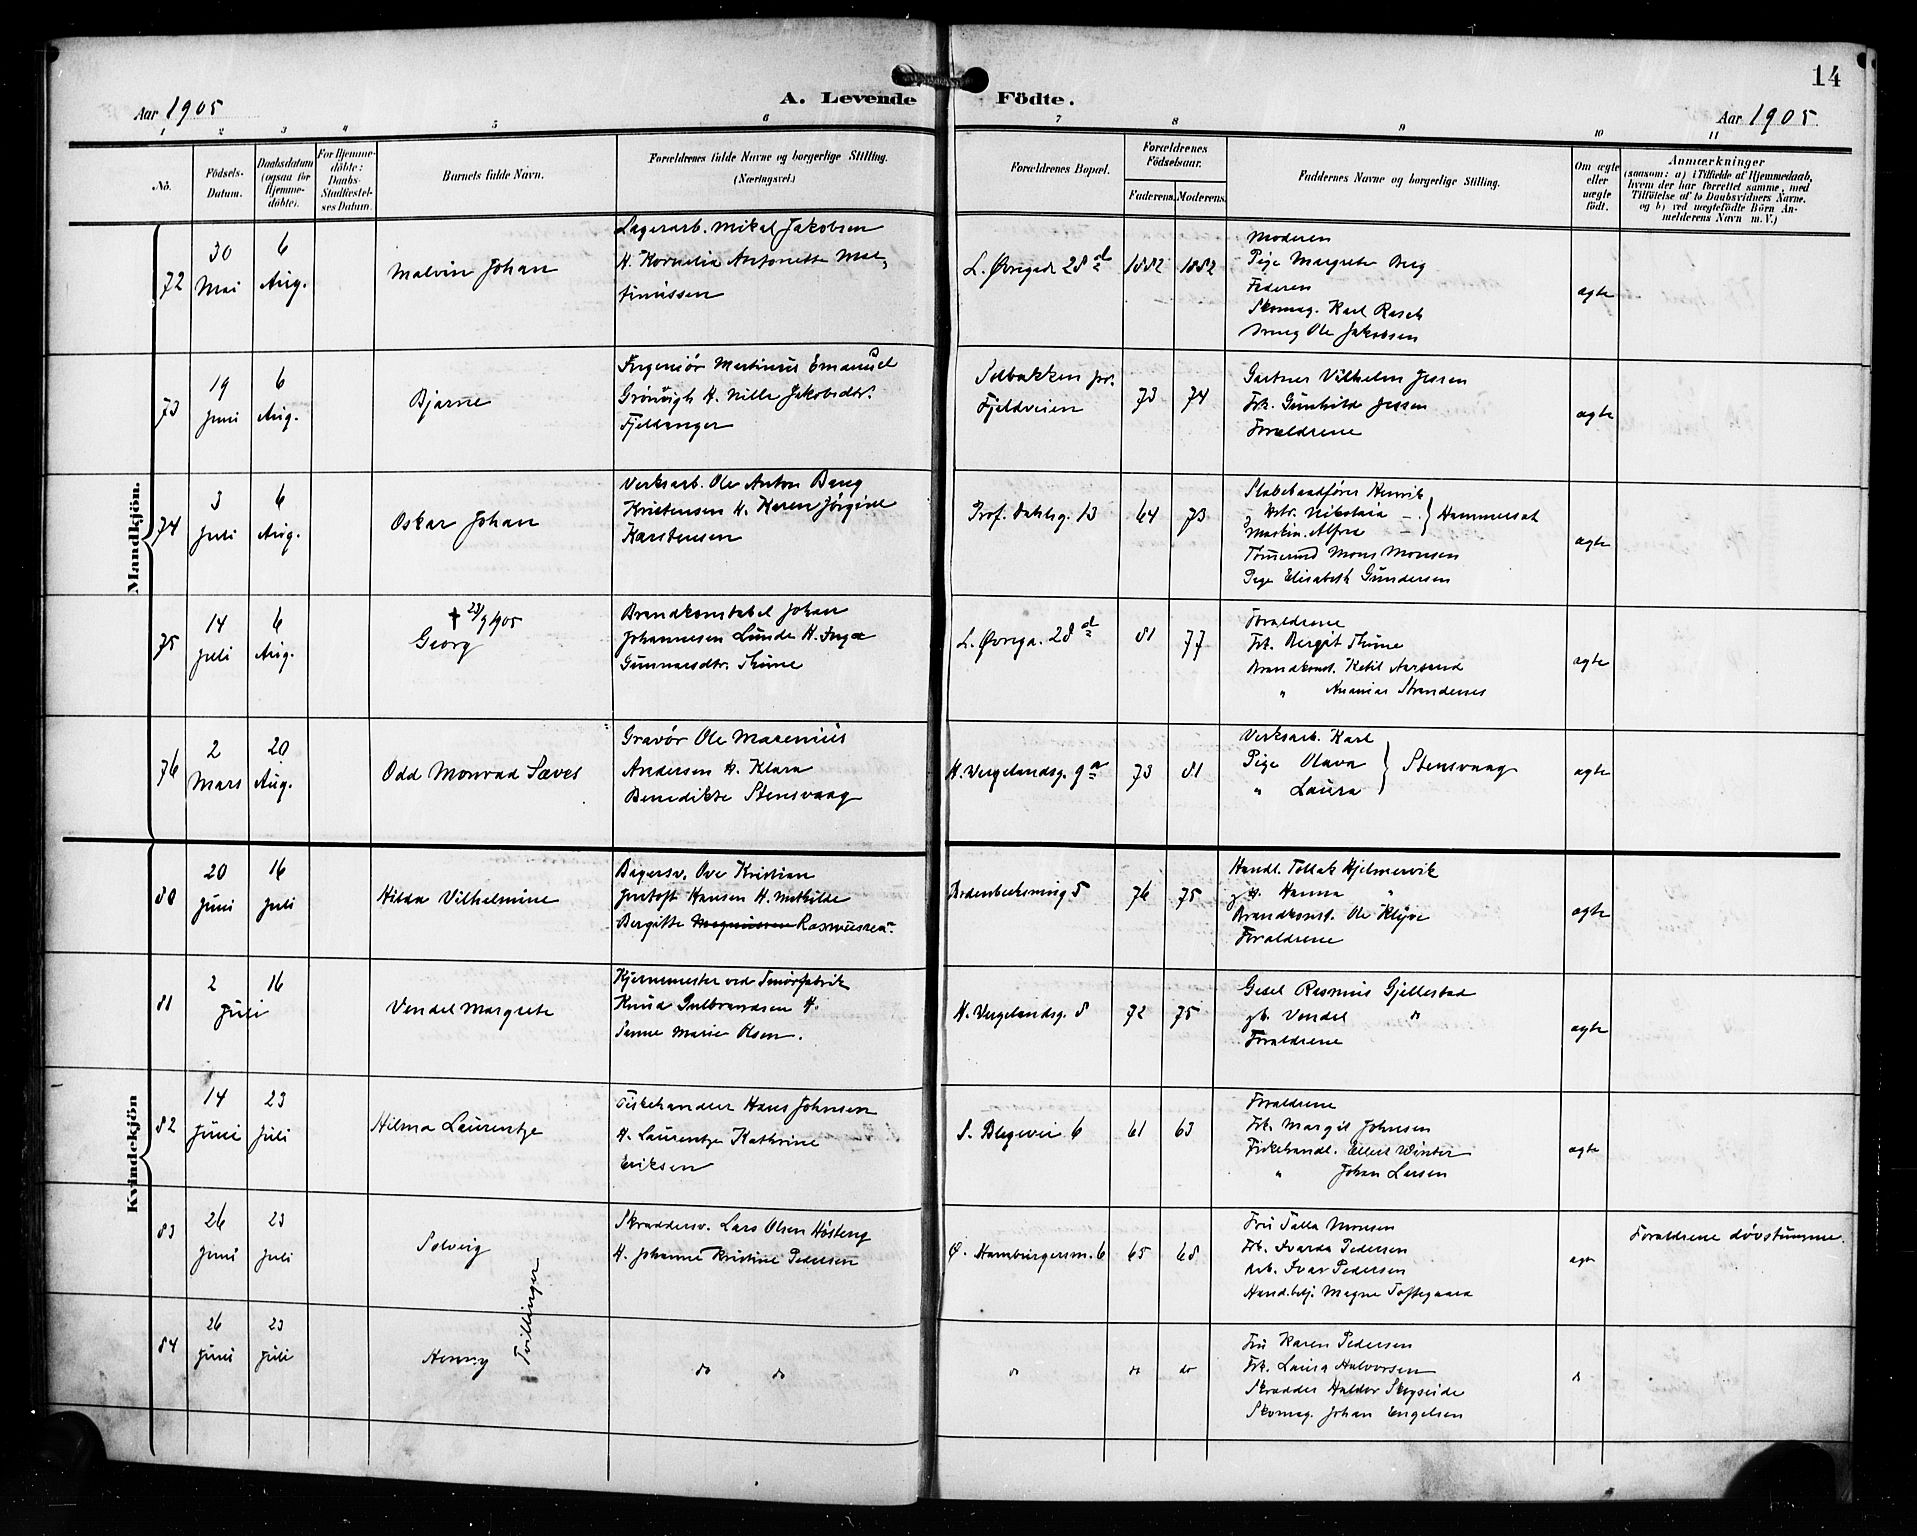 14
Aar 1905
A. Levende Födte.
Aar 1905
1 2 3 4 5 6 7 8 9 10 11
No.
Födsels-
Datum.
Daabsdatum
(ogsaa for
Hjemme-
döbte).
For Hjemme-
döbte:
Daabs-
Stadfæstel-
ses Datum.
Barnets fulde Navn.
Forældrenes fulde Navne og borgerlige Stilling.
(Næringsvei.)
Forældrenes Bopæl.
Forældrenes
Födselsaar.
Faderens.
Moderens.
Faddernes Navne og borgerlige Stilling.
Om ægte
eller
uægte
födt.
Anmærkninger
(saasom: a) i Tilfælde af Hjemmedaab,
hvem der har forrettet samme, med
Tilföielse af to Daabsvidners Navne.
og b) ved uægtefödte Börn An-
melderens Navn m. V.)
Mandkjön.
72
30
Mai
6
Aug.
Malvin Johan
Lagerarb. Mikal Jakobsen
H. Kornelia Antonette Mar-
tinussen
L. Øvregade 28 d
1882
1882
Moderen
Pige Margrete Berg
Faderen
Skomag. Karl Rasch
Smeg Ole Jakobsen
ægte
73
19
Juni
6
Aug.
Bjarne
Ingeniør Martinus Emanuel
Grönvigh H. Nille Jakobsdtr.
Fjeldanger
Solbakken pr.
Fjeldveien
73
74
Gartner Vilhelm Jessen
Frk. Gunhilda Jessen
Forældrene
ægte
74
3
Juli
6
Aug.
Oskar Johan
Verksarb. Ole Anton Bang
Kristensen H. Karen Jörgine
Karstensen
Prof. Dahlsg. 13
64
73
Henrik
Nikolaia —
Maskin. Alfred —
Hammersat
Tömmermd Mons Monsen
Pige Elisabeth Gundersen
ægte
75
14
Juli
6
Aug.
† 23/9 1905
Georg
Brandkonstabel Johan
Johannesen Lunde H. Inga
Gunnarsdtr. Thime
L. Øvrega. 28 d
81
77
Forældrene
Frk. Bergit Thime
Brandkonst. Ketil Aarsand
" Ananias Strandenes
ægte
76
2
Mars
20
Aug.
Odd Monrad Sæves
Gravör Ole Marenius
Andersen H. Klara
Benedikte Stensvaag
H. Vergelandsg. 9 a
73
81
Verksarb. Karl
Pige Olava
" Laura
Stensvaag
ægte
Kvindekjön
80
20
Juni
16
Juli
Hilda Vilhelmine
Bagersv. Ove Kristian
Justoft Hansen H. Mathilde
Bergitte Magnussen Rasmussen.
Bredenbecksmug 5
76
75
Handl. Tollak Hjelmervik
H. Hanna "
Brandkonst. Ole Kleve
Forældrene
ægte
81
2
16
Juli
Vendel Margrete
Kjernemester ved Smörfabrik
Knud Gulbrandsen H.
Sanne Marie Olsen.
H. Vergelandsg. 8
72
75
Gesel Rasmus Gjellestad
gb. Vendel do
Forældrene
ægte
82
14
Juni
23
Juli
Hilma Laurentze
Fiskehandler Hans Johnsen
H. Laurentze Kathrine
Eriksen
S. Blegevei 6
61
63
Forældrene
Frk. Margit Johnsen
Fiskehandl. Ellert Winter
" Johan Larsen
ægte
83
26
Juni
23
Juli
Solveig
Skræddersv. Lars Olsen Hösteng
H. Johanne Kristine Pedersen
Ø. Hamburgersm. 6
65
68
Fru Talla Monsen
Frk. Ivarda Pedersen
Arb. Ivar Pedersen
Hand.betj. Magne Toftegaard
ægte
Forældrene dövstumme.
84
26
Juni
23
Juli
Henny
Tvillinger
do do
do
do
do
Fru Karen Pedersen
Frk. Laura Halvorsen
Skrædder Haldor Skogseide
Skomag. Johan Engelsen
do